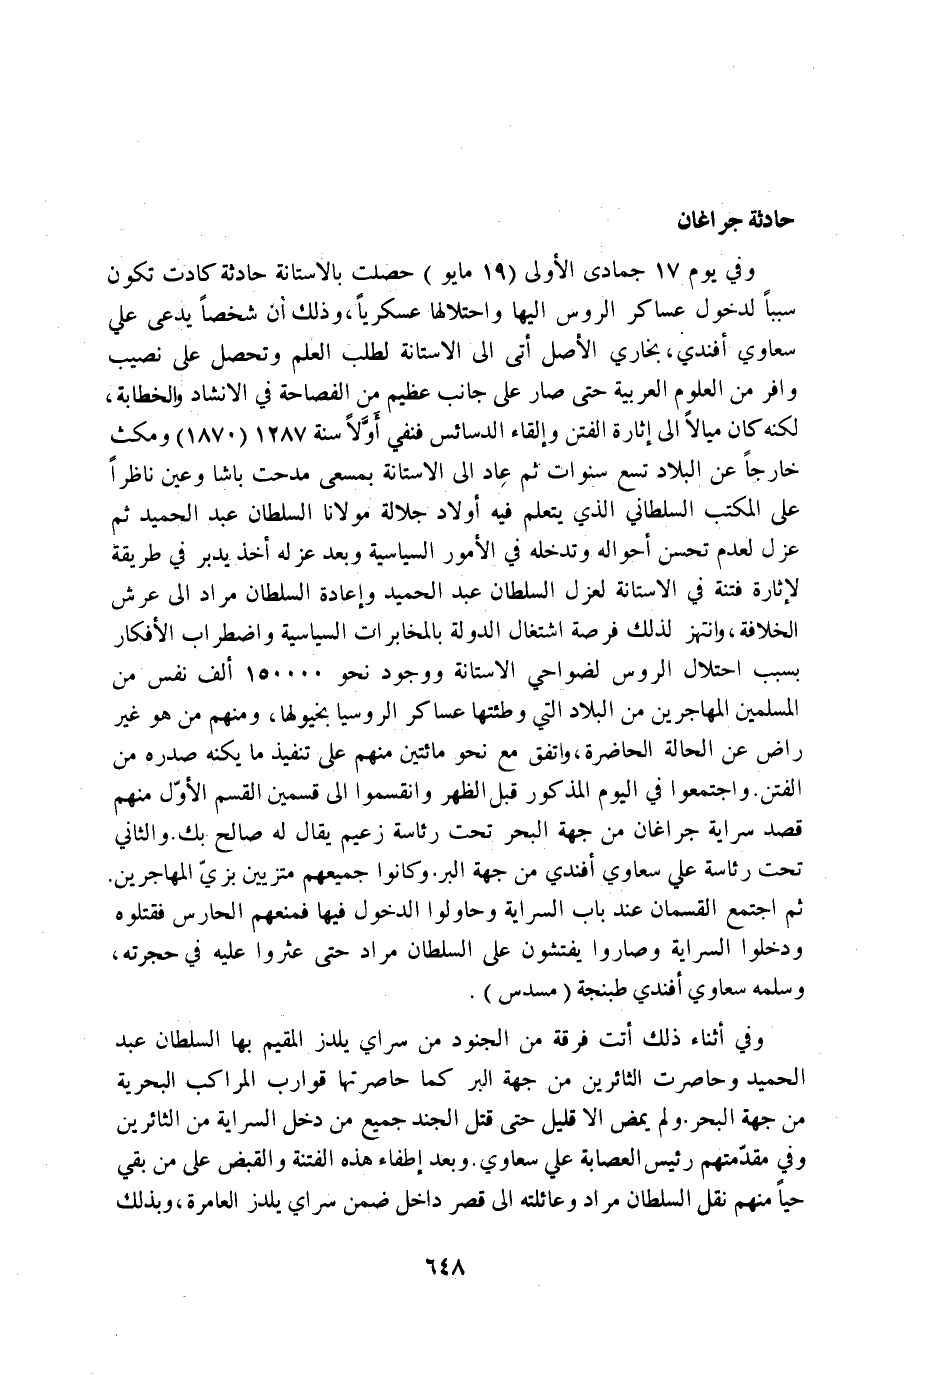 حادثة جراغان
وفي يوم ١٧ جمادى الأولى (١٩ مايو ) حصلت بالاستانة حادثة كادت تكون
سبباً لدخول عساكر الروس اليها واحتلالها عسكرياً، وذلك أن شخصاً يدعى علي
سعاوي أفندي، بخاري الأصل أتى الى الاستانة لطلب العلم وتحصل على نصيب
وافر من العلوم العربية حتى صار على جانب عظيم من الفصاحة في الانشاد والخطابة،
لكنه كان ميالاً الى إثارة الفتن وإلقاء الدسائس فنفي أوَّلاً سنة ١٢٨٧ (١٨٧٠) ومكث
خارجاً عن البلاد تسع سنوات ثم عاد الى الاستانة بمسعى مدحت باشا وعين ناظراً
على المكتب السلطاني الذي يتعلم فيه أولاد جلالة مولانا السلطان عبد الحميد ثم
عزل لعدم تحسن أحواله وتدخله في الأمور السياسية وبعد عزله أخذ يدبر في طريقة
لإثارة فتنة في الاستانة لعزل السلطان عبد الحميد وإعادة السلطان مراد الى عرش
الخلافة، وانتهز لذلك فرصة اشتغال الدولة بالمخابرات السياسية واضطراب الأفكار
بسبب احتلال الروس لضواحي الاستانة ووجود نحو ١٥٠٠٠٠ ألف نفس من
المسلمين المهاجرين من البلاد التي وطئتها عساكر الروسيا بخيولها، ومنهم من هو غير
راض عن الحالة الحاضرة، واتفق مع نحو مائتين منهم على تنفيذ ما يكنه صدره من
الفتن. واجتمعوا في اليوم المذكور قبل الظهر وانقسموا الى قسمين القسم الأوّل منهم
قصد سراية جراغان من جهة البحر تحت رئاسة زعيم يقال له صالح بك. والثاني
تحت رئاسة علي سعاوي أفندي من جهة البر. وكانوا جميعهم متزيين بزيّ المهاجرين.
ثم اجتمع القسمان عند باب السراية وحاولوا الدخول فيها فمنعهم الحارس فقتلوه
ودخلوا السراية وصاروا يفتشون على السلطان مراد حتى عثروا عليه في حجرته،
وسلمه سعاوي أفندي طبنجة ( مسدس ) .
وفي أثناء ذلك أتت فرقة من الجنود من سراي يلدز المقيم بها السلطان عبد
الحميد وحاصرت الثائرين من جهة البر كما حاصرتها قوارب المراكب البحرية
من جهة البحر. ولم يمض الا قليل حتى قتل الجند جميع من دخل السراية من الثائرين
وفي مقدّمتهم رئيس العصابة علي سعاوي. وبعد إطفاء هذه الفتنة والقبض على من بقي
حياً منهم نقل السلطان مراد وعائلته الى قصر داخل ضمن سراي يلدز العامرة، وبذلك
٦٤٨